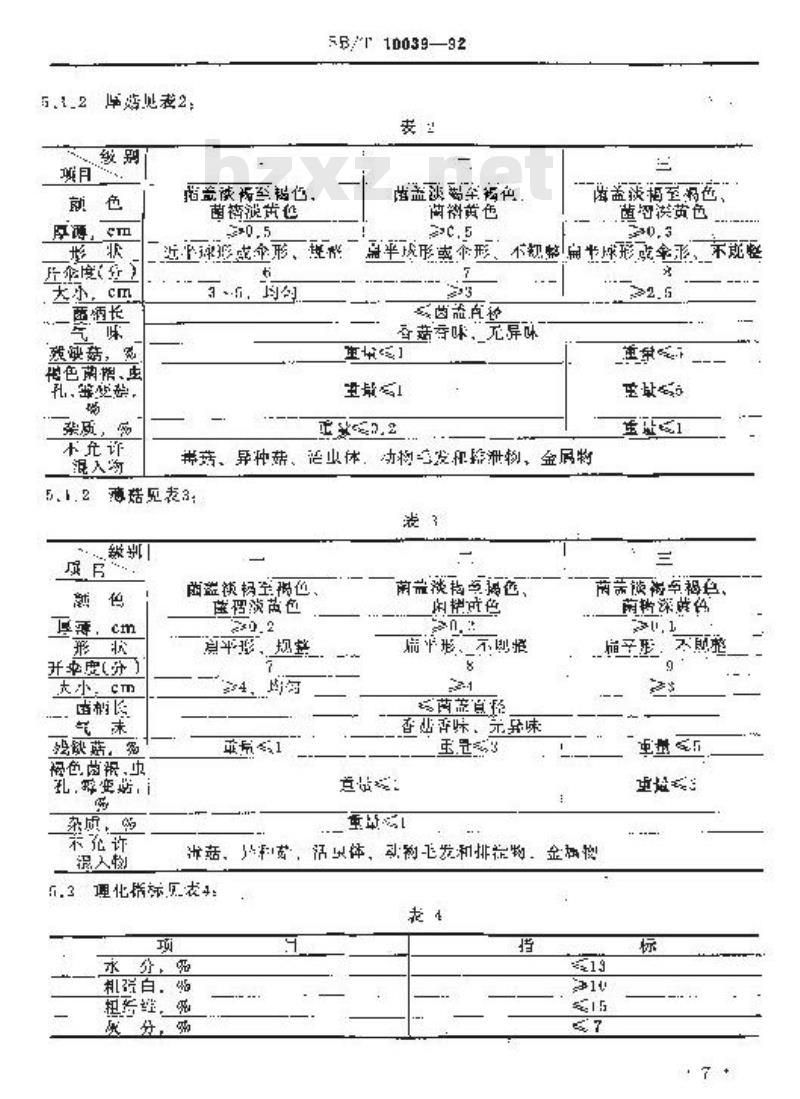 SB/T 10039—92
5.1.2 厚菇见表2;
表 2
级别
项目
一 二 三
颜 色 菌盖淡褐至褐色、 菌盖淡褐至褐色、 菌盖淡褐至褐色、
菌褶淡黄色 菌褶黄色 菌褶深黄色
厚薄, cm ≥0.5 ≥0.5 ≥0.3
形 状 近半球形或伞形、规整 扁半球形或伞形、不规整 扁半球形或伞形、不规整
开伞度(分) 6 7 8
大小, cm 3~5, 均匀 ≥3 ≥2.5
菌柄长 ≤菌盖直径
气 味 香菇香味、无异味
残缺菇, % 重量≤1 重量≤
褐色菌褶、虫
孔、霉变菇, 重量≤1 重量≤5
%
杂质, % 重量≤0.2 重量≤1
不允许
混入物 毒菇、异种菇、活虫体、动物毛发和排泄物、金属物
5.1.2 薄菇见表3;
表 3
级别
项目
一 二 三
颜 色 菌盖淡褐至褐色、 菌盖淡褐至褐色、 菌盖淡褐至褐色、
菌褶淡黄色 菌褶黄色 菌褶深黄色
厚薄, cm ≥0.2 ≥0.2 ≥0.1
形 状 扁平形、规整 扁平形、不规整 扁平形、不规整
开伞度(分) 7 8 9
大小, cm ≥4, 均匀 ≥4 ≥3
菌柄长 ≤菌盖直径
气 味 香菇香味、无异味
残缺菇, % 重量≤1 重量≤3 重量≤5
褐色菌褶、虫
孔、霉变菇, 重量≤ 重量≤
%
杂质, % 重量≤1
不允许
混入物 毒菇、异种菇、活虫体、动物毛发和排泄物、金属物
5.3 理化指标见表4:
表 4
项 目 指 标
水 分, % ≤13
粗蛋白, % ≥10
粗纤维, % ≤15
灰 分, % ≤7
· 7 ·
bzxz.net